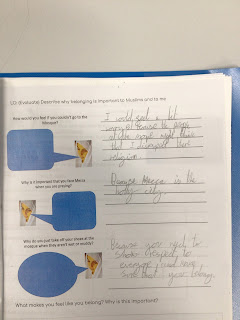 LO: (Evaluate) Describe why belonging is important to Muslims and to me
How would you feel if you couldn't go to the Mosque?
I would feel a bit
angry because the people
at the mosque might think
that I disrespect their
religion.
Why is it important that you face Mecca when you are praying?
Because Mecca is the
holy city.
Why do you just take off your shoes at the mosque when they aren't wet or muddy?
Because you need to
show respect to
everyone and
your
What makes you feel like you belong? Why is this important?